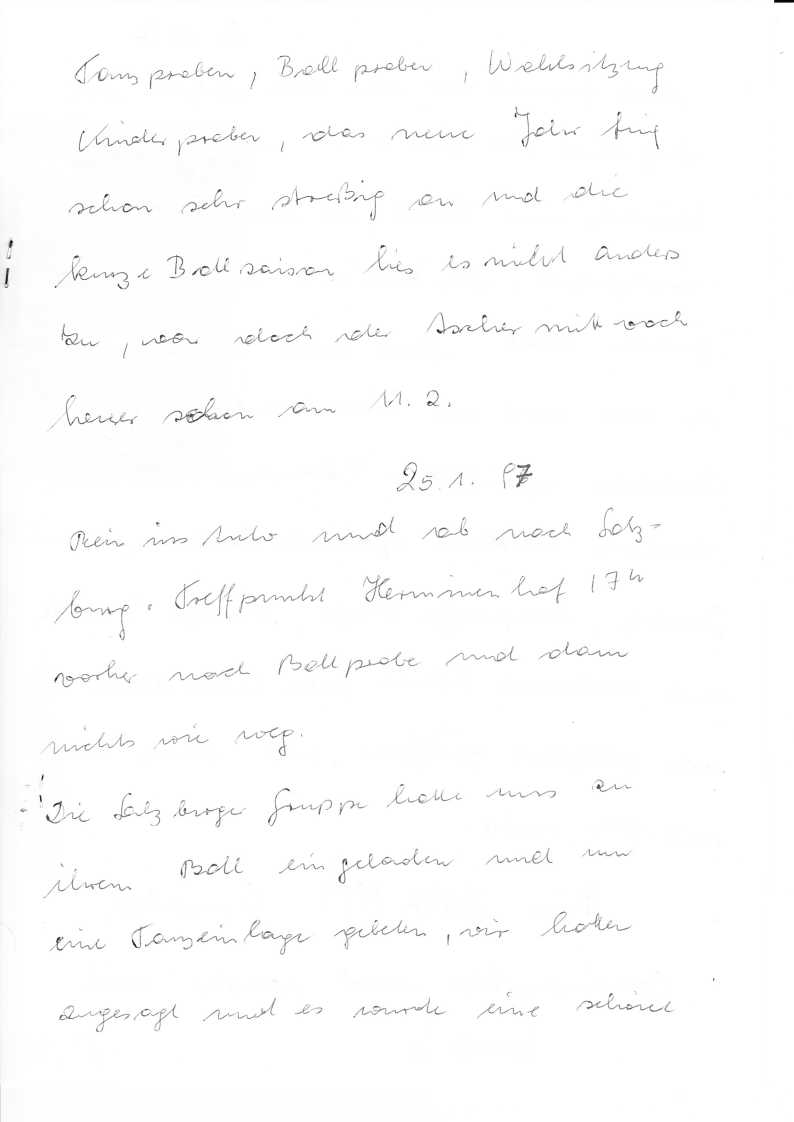 Tanzproben, Ballproben, Wahlsitzung
Kinderproben, das neue Jahr fing
schon sehr streßig an und die
kurze Ballsaison lies es nicht anders
zu, war doch der Aschermittwoch
heuer schon am 11.2.
25.1.97
Rein ins Auto und ab nach Salz-
burg. Treffpunkt Herminenhof 17h
vorher noch Ballprobe und dann
nichts wie weg.
Die Salzburger Gruppe hatte uns zu
ihrem Ball eingeladen und um
eine Tanzeinlage gebeten, wir hatten
zugesagt und es wurde eine schöne